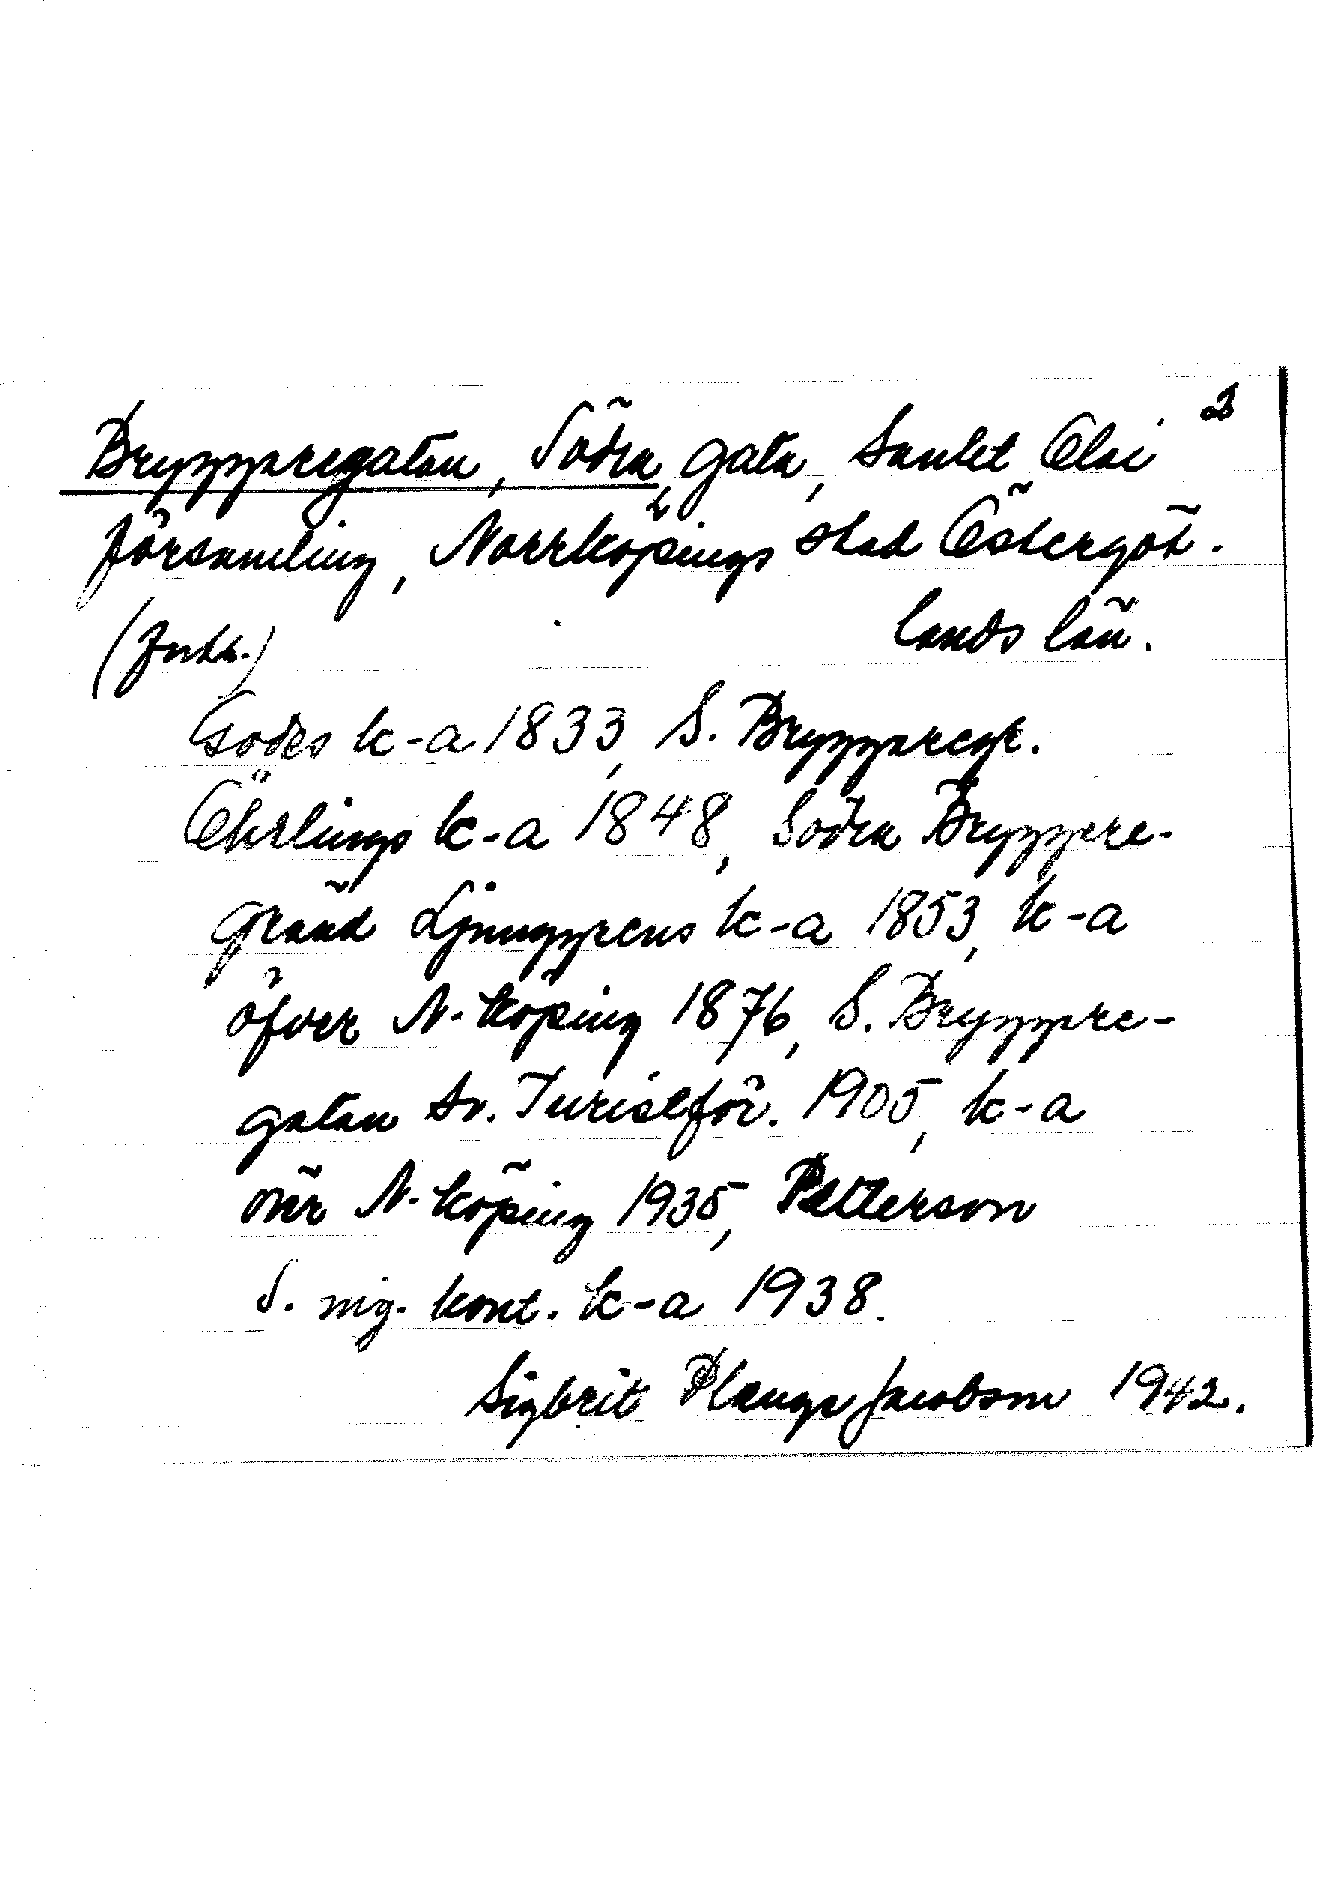 2
Bryggaregatan, Södra, gata, Sankt Olai
församling, Norrköpings stad Östergöt.
(forts.) lands län.
Godes k-a 1833, S. Bryggaregr.
Öhrlings k-a 1848, Södra Bryggare-
gränd Ljunggrens k-a 1853, k-a
öfver N-köping 1876, S. Bryggare-
gatan Sv. Turistför. 1905, k-a
över N-köping 1935, Petterson
S. ing. kont. k-a 1938.
Sigbrit Plænge Jacobson 1942.